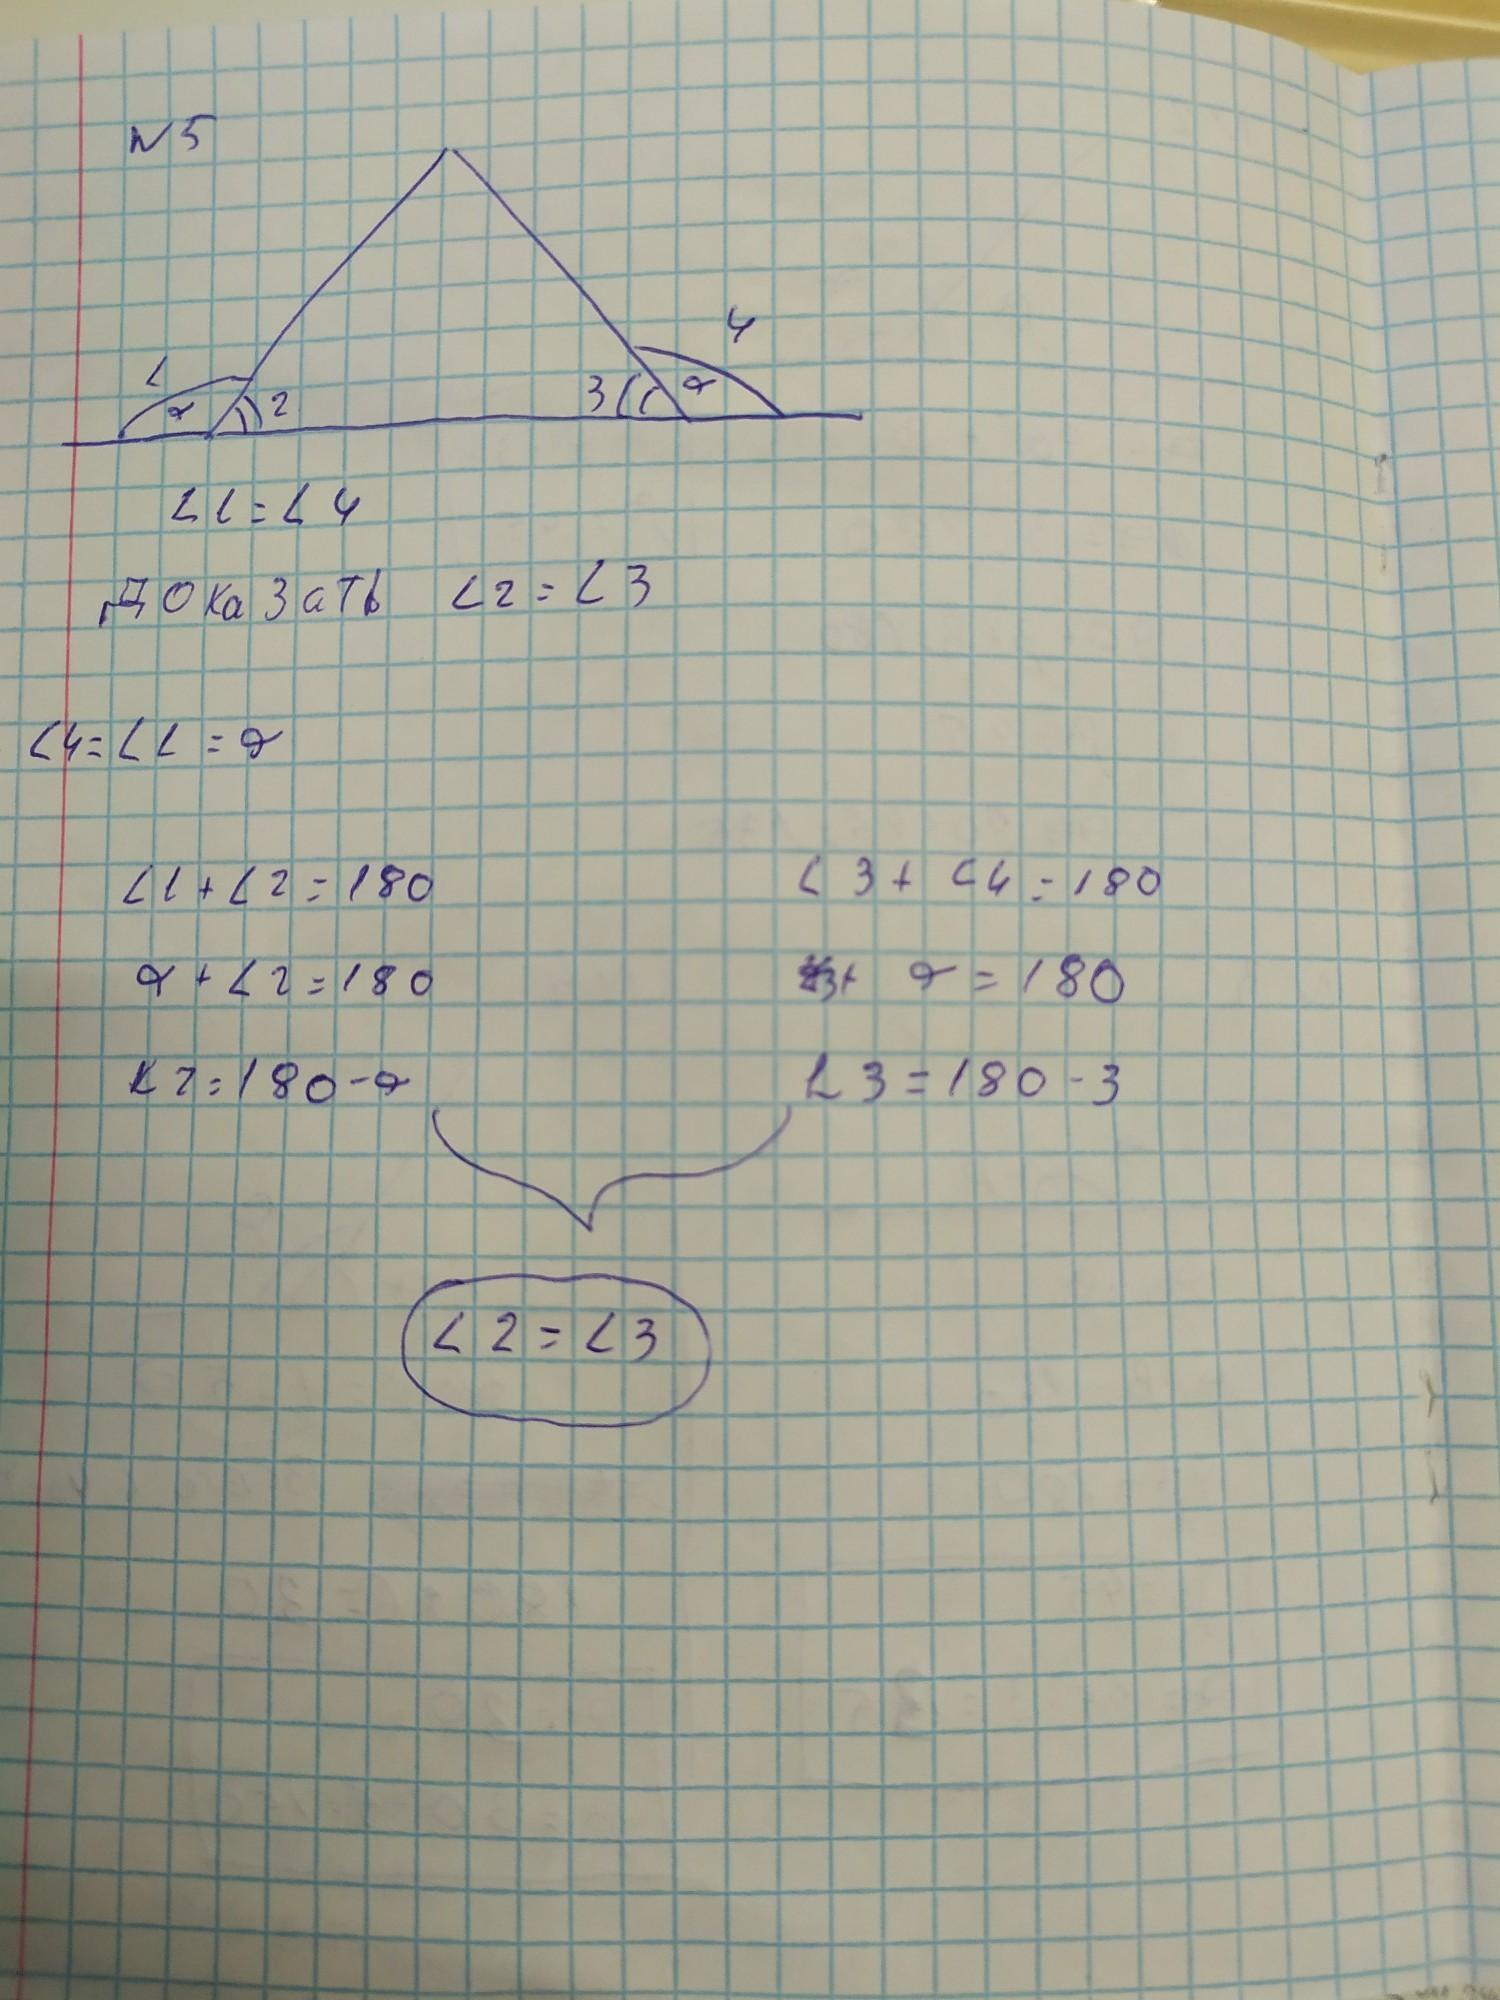 N5
1 4
α 2 3 α
∠1=∠4
ДОКаЗаТЬ ∠2=∠3
∠4=∠1=α
∠1+∠2=180 ∠3+∠4=180
α+∠2=180 ∠3+ α=180
∠2=180-α ∠3=180-3
∠2=∠3